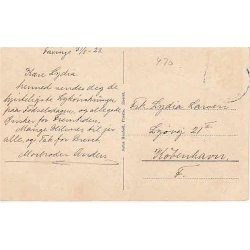 Kære Lydia
hermed sendes dig de
hjerteligste Lykønskninger
paa Fødselsdagen, og allerbedste
Ønsker for Fremtiden.
Mange Hilsner til jer
alle, og Tak for Brevet.
Morbroder Anders
470
Frk. Lydia Larsen
21
København
F.